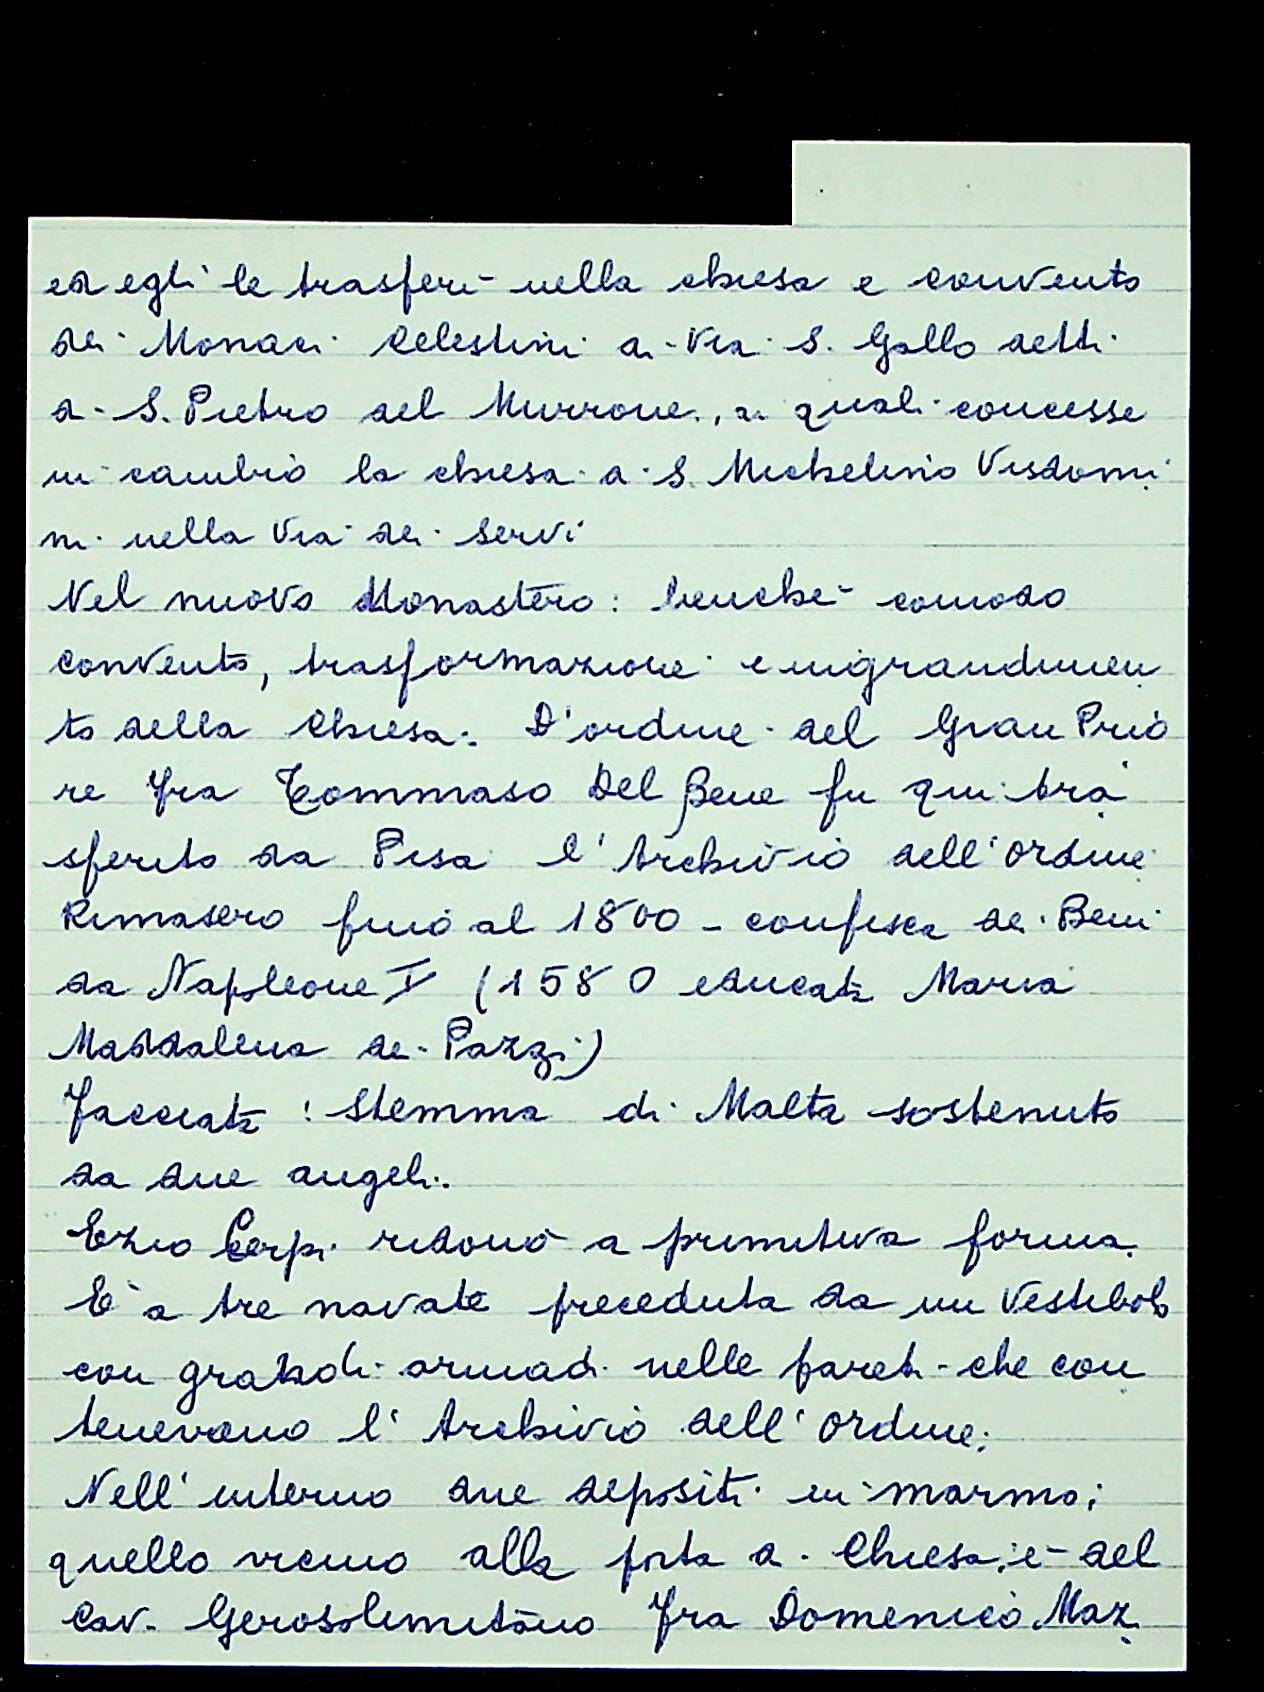 ed egli le trasferì nella chiesa e convento
dei Monaci Celestini di Via S. Gallo detti
di S. Pietro del Murrone, ai quali concesse
in cambio la chiesa di S. Michelino Visdomi
ni nella Via dei Servi
Nel nuovo Monastero: benchè comodo
convento, trasformazione e ingrandimen
to della Chiesa. D'ordine del Gran Prio
re Fra Tommaso Del Bene fu qui tra
sferito da Pisa l'Archivio dell'ordine
Rimasero fino al 1800 - confisca dei Beni
da Napoleone I (1580 educata Maria
Maddalena de Pazzi)
Facciata: Stemma di Malta sostenuto
da due angeli.
Ezio Cerpi ridonò a primitiva forma.
E' a tre navate preceduta da un Vestibolo
con grandi armadi nelle pareti che con
tenevano l'Archivio dell'ordine.
Nell'interno due depositi in marmo;
quello vicino alla porta di Chiesa, è del
Cav. Gerosolimitano Fra Domenico Maz